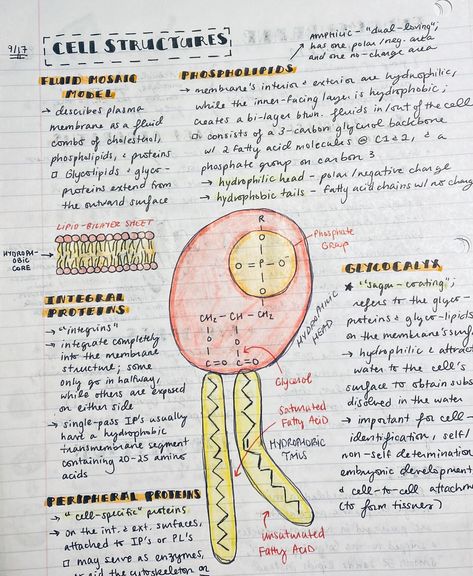 9/17
CELL STRUCTURES
AMPHILIC - "dual-loving";
has one polar/neg. area
and one no-charge area
FLUID MOSAIC
MODEL
→ describes plasma
membrane as a fluid
combo of cholesthol,
phospholipids, & proteins
□ Glycolipids & glyco-
proteins extend from
the outward surface
PHOSPHOLIPIDS
→ membrane's interior & exterior are hydrophilic,
while the inner-facing layer is hydrophobic;
creates a bi-layer btwn. fluids in/out of the cell
□ consists of a 3-carbon glycerol backbone
w/ 2 fatty acid molecules @ C1&2, & a
phosphate group on carbon 3
→ hydrophilic head - polar/negative charge
→ hydrophobic tails - fatty acid chains w/ no charge
LIPID-BILAYER SHEET
HYDROPH-
OBIC
CORE
R
O
O=P-O⁻
O
CH₂-CH-CH₂
O O
C=O C=O
Phosphate
Group
HYDROPHILIC
HEAD
Glycerol
Saturated
Fatty Acid
HYDROPHOBIC
TAILS
Unsaturated
Fatty Acid
INTEGRAL
PROTEINS
→ "integrins"
→ integrate completely
into the membrane
structure; some
only go in halfway,
while others are exposed
on either side
→ single-pass IP's usually
have a hydrophobic
transmembrane segment
containing 20-25 amino
acids
PERIPHERAL PROTEINS
→ "cell-specific" proteins
→ on the int. & ext. surfaces,
attached to IP's or PL's
□ may serve as enzymes,
or aid the cytoskeleton or
GLYCOCALYX
★ "sugar-coating";
refers to the glyco-
proteins & glyco-lipids
on the membrane's surf
→ hydrophilic & attrac
water to the cell's
surface to obtain subs
dissolved in the water
→ important for cell-
identification, self/
non-self determination
embryonic development
& cell-to-cell attachm
(to form tissues)